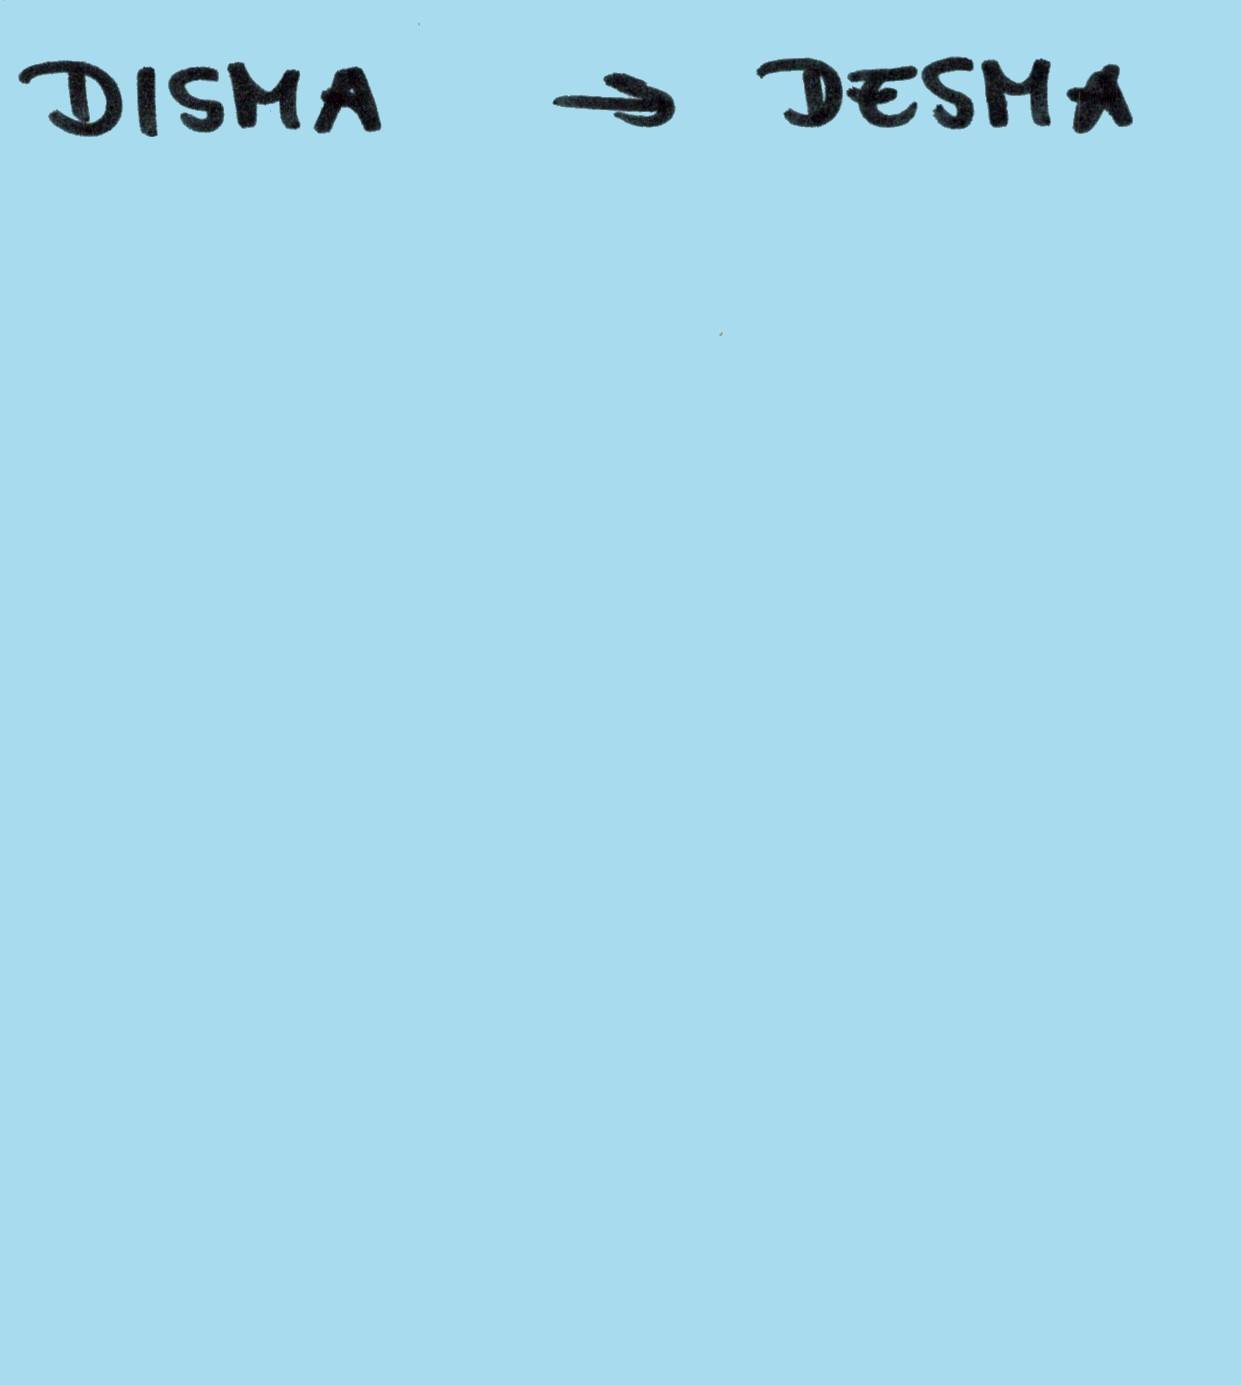 DISMA → DESMA